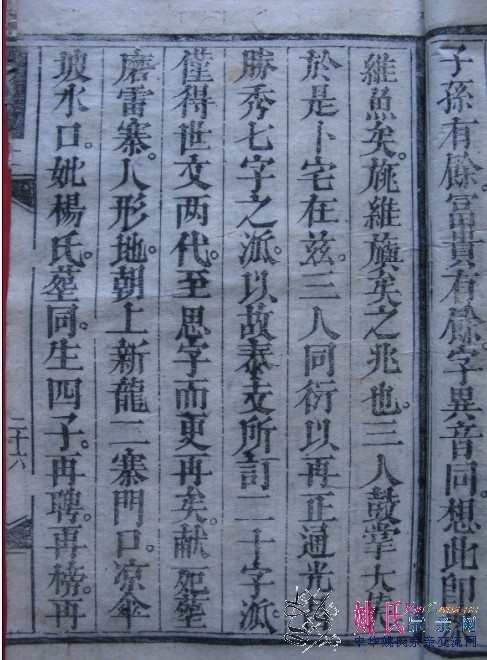 子孫有餘富貴有餘字異音同想此即
維魚矣旐維旟矣之兆也三人鼓掌大
於是卜宅在兹三人同衍以再正通光
勝秀七字之派以故泰文所訂二十字派
僅得世文两代至思字而更再矣献妃塟
磨雷寨人形地朝上新龍二寨門口凉傘
坡水口妣楊氏塟同生四子再聘再榜再
二十六
姚氏宗亲网
中华姚氏宗亲交流网